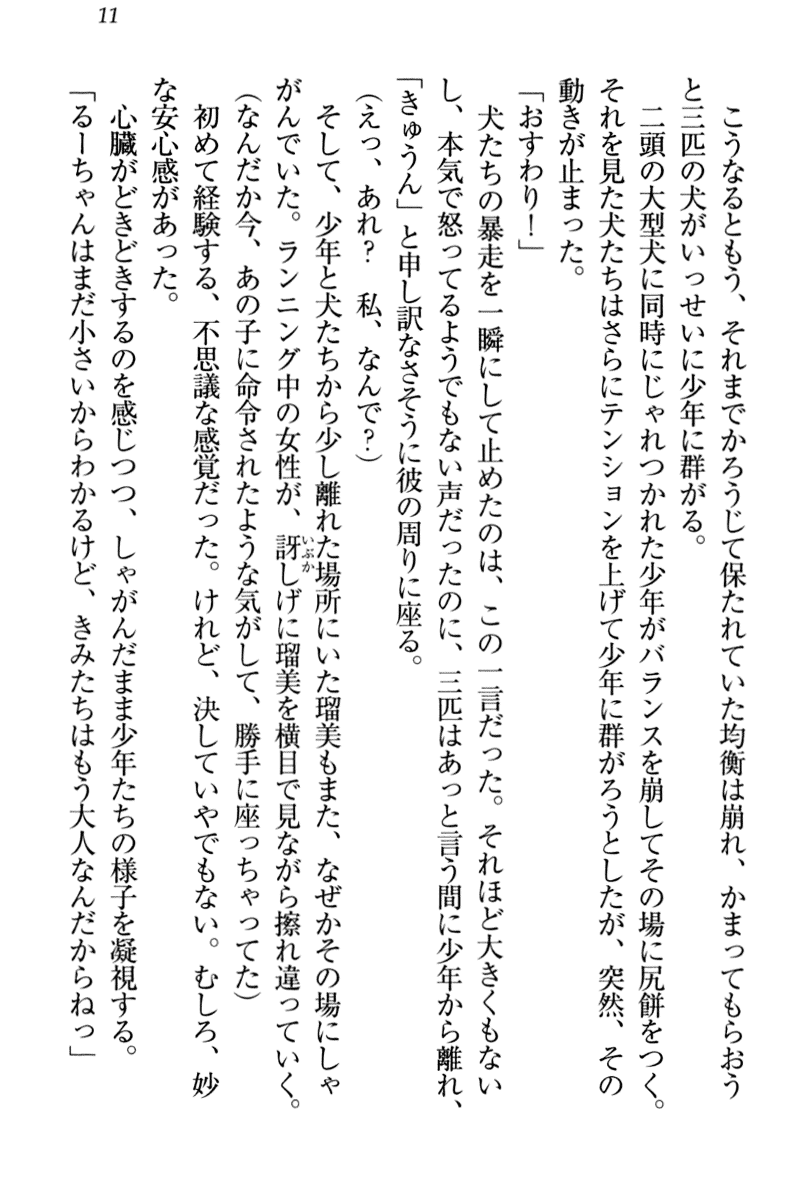 11
こうなるともう、それまでかろうじて保たれていた均衡は崩れ、かまってもらおう
と三匹の犬がいっせいに少年に群がる。
二頭の大型犬に同時にじゃれつかれた少年がバランスを崩してその場に尻餅をつく。
それを見た犬たちはさらにテンションを上げて少年に群がろうとしたが、突然、その
動きが止まった。
「おすわり！」
犬たちの暴走を一瞬にして止めたのは、この一言だった。それほど大きくもない
し、本気で怒ってるようでもない声だったのに、三匹はあっと言う間に少年から離れ、
「きゅうん」と申し訳なさそうに彼の周りに座る。
（えっ、あれ？　私、なんで？）
そして、少年と犬たちから少し離れた場所にいた瑠美もまた、なぜかその場にしゃ
がんでいた。ランニング中の女性が、訝しげに瑠美を横目で見ながら擦れ違っていく。
（なんだか今、あの子に命令されたような気がして、勝手に座っちゃってた）
初めて経験する、不思議な感覚だった。けれど、決していやでもない。むしろ、妙
な安心感があった。
心臓がどきどきするのを感じつつ、しゃがんだまま少年たちの様子を凝視する。
「るーちゃんはまだ小さいからわかるけど、きみたちはもう大人なんだからねっ」